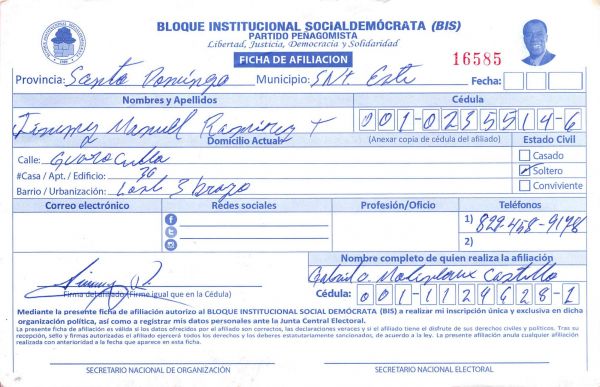 BLOQUE INSTITUCIONAL SOCIALDEMÓCRATA (BIS)
PARTIDO PEÑAGOMISTA
Libertad, Justicia, Democracia y Solidaridad
FICHA DE AFILIACION
16585
Provincia: Santo Domingo Municipio: Este Fecha:
Nombres y Apellidos Cédula
Jimmy Manuel Ramirez T 001-0235514-6
Domicilio Actual (Anexar copia de cédula del afiliado)
Calle: Estado Civil
#Casa / Apt. / Edificio: 36 Casado
Barrio / Urbanización: Los 3 brazo Soltero
Conviviente
Correo electrónico Redes sociales Profesión/Oficio Teléfonos
1) 829-458-9178
2)
Nombre completo de quien realiza la afiliación
Castillo
Firma del afiliado (Firme igual que en la Cédula) Cédula: 001-1129628-1
Mediante la presente ficha de afiliación autorizo al BLOQUE INSTITUCIONAL SOCIAL DEMÓCRATA (BIS) a realizar mi inscripción única y exclusiva en dicha
organización política, así como a registrar mis datos personales ante la Junta Central Electoral.
La presente ficha de afiliación es válida si los datos ofrecidos por el afiliado son correctos, las declaraciones veraces y si el afiliado tiene el disfrute de sus derechos civiles y políticos. Tras su
recepción, sello y firmas autorizadas el afiliado ejercerá todos los derechos y los deberes estatutariamente sancionados, de acuerdo a la ley. La presente afiliación anula cualquier afiliación
realizada con anterioridad a la fecha que aparece en esta ficha.
SECRETARIO NACIONAL DE ORGANIZACIÓN SECRETARIO NACIONAL ELECTORAL